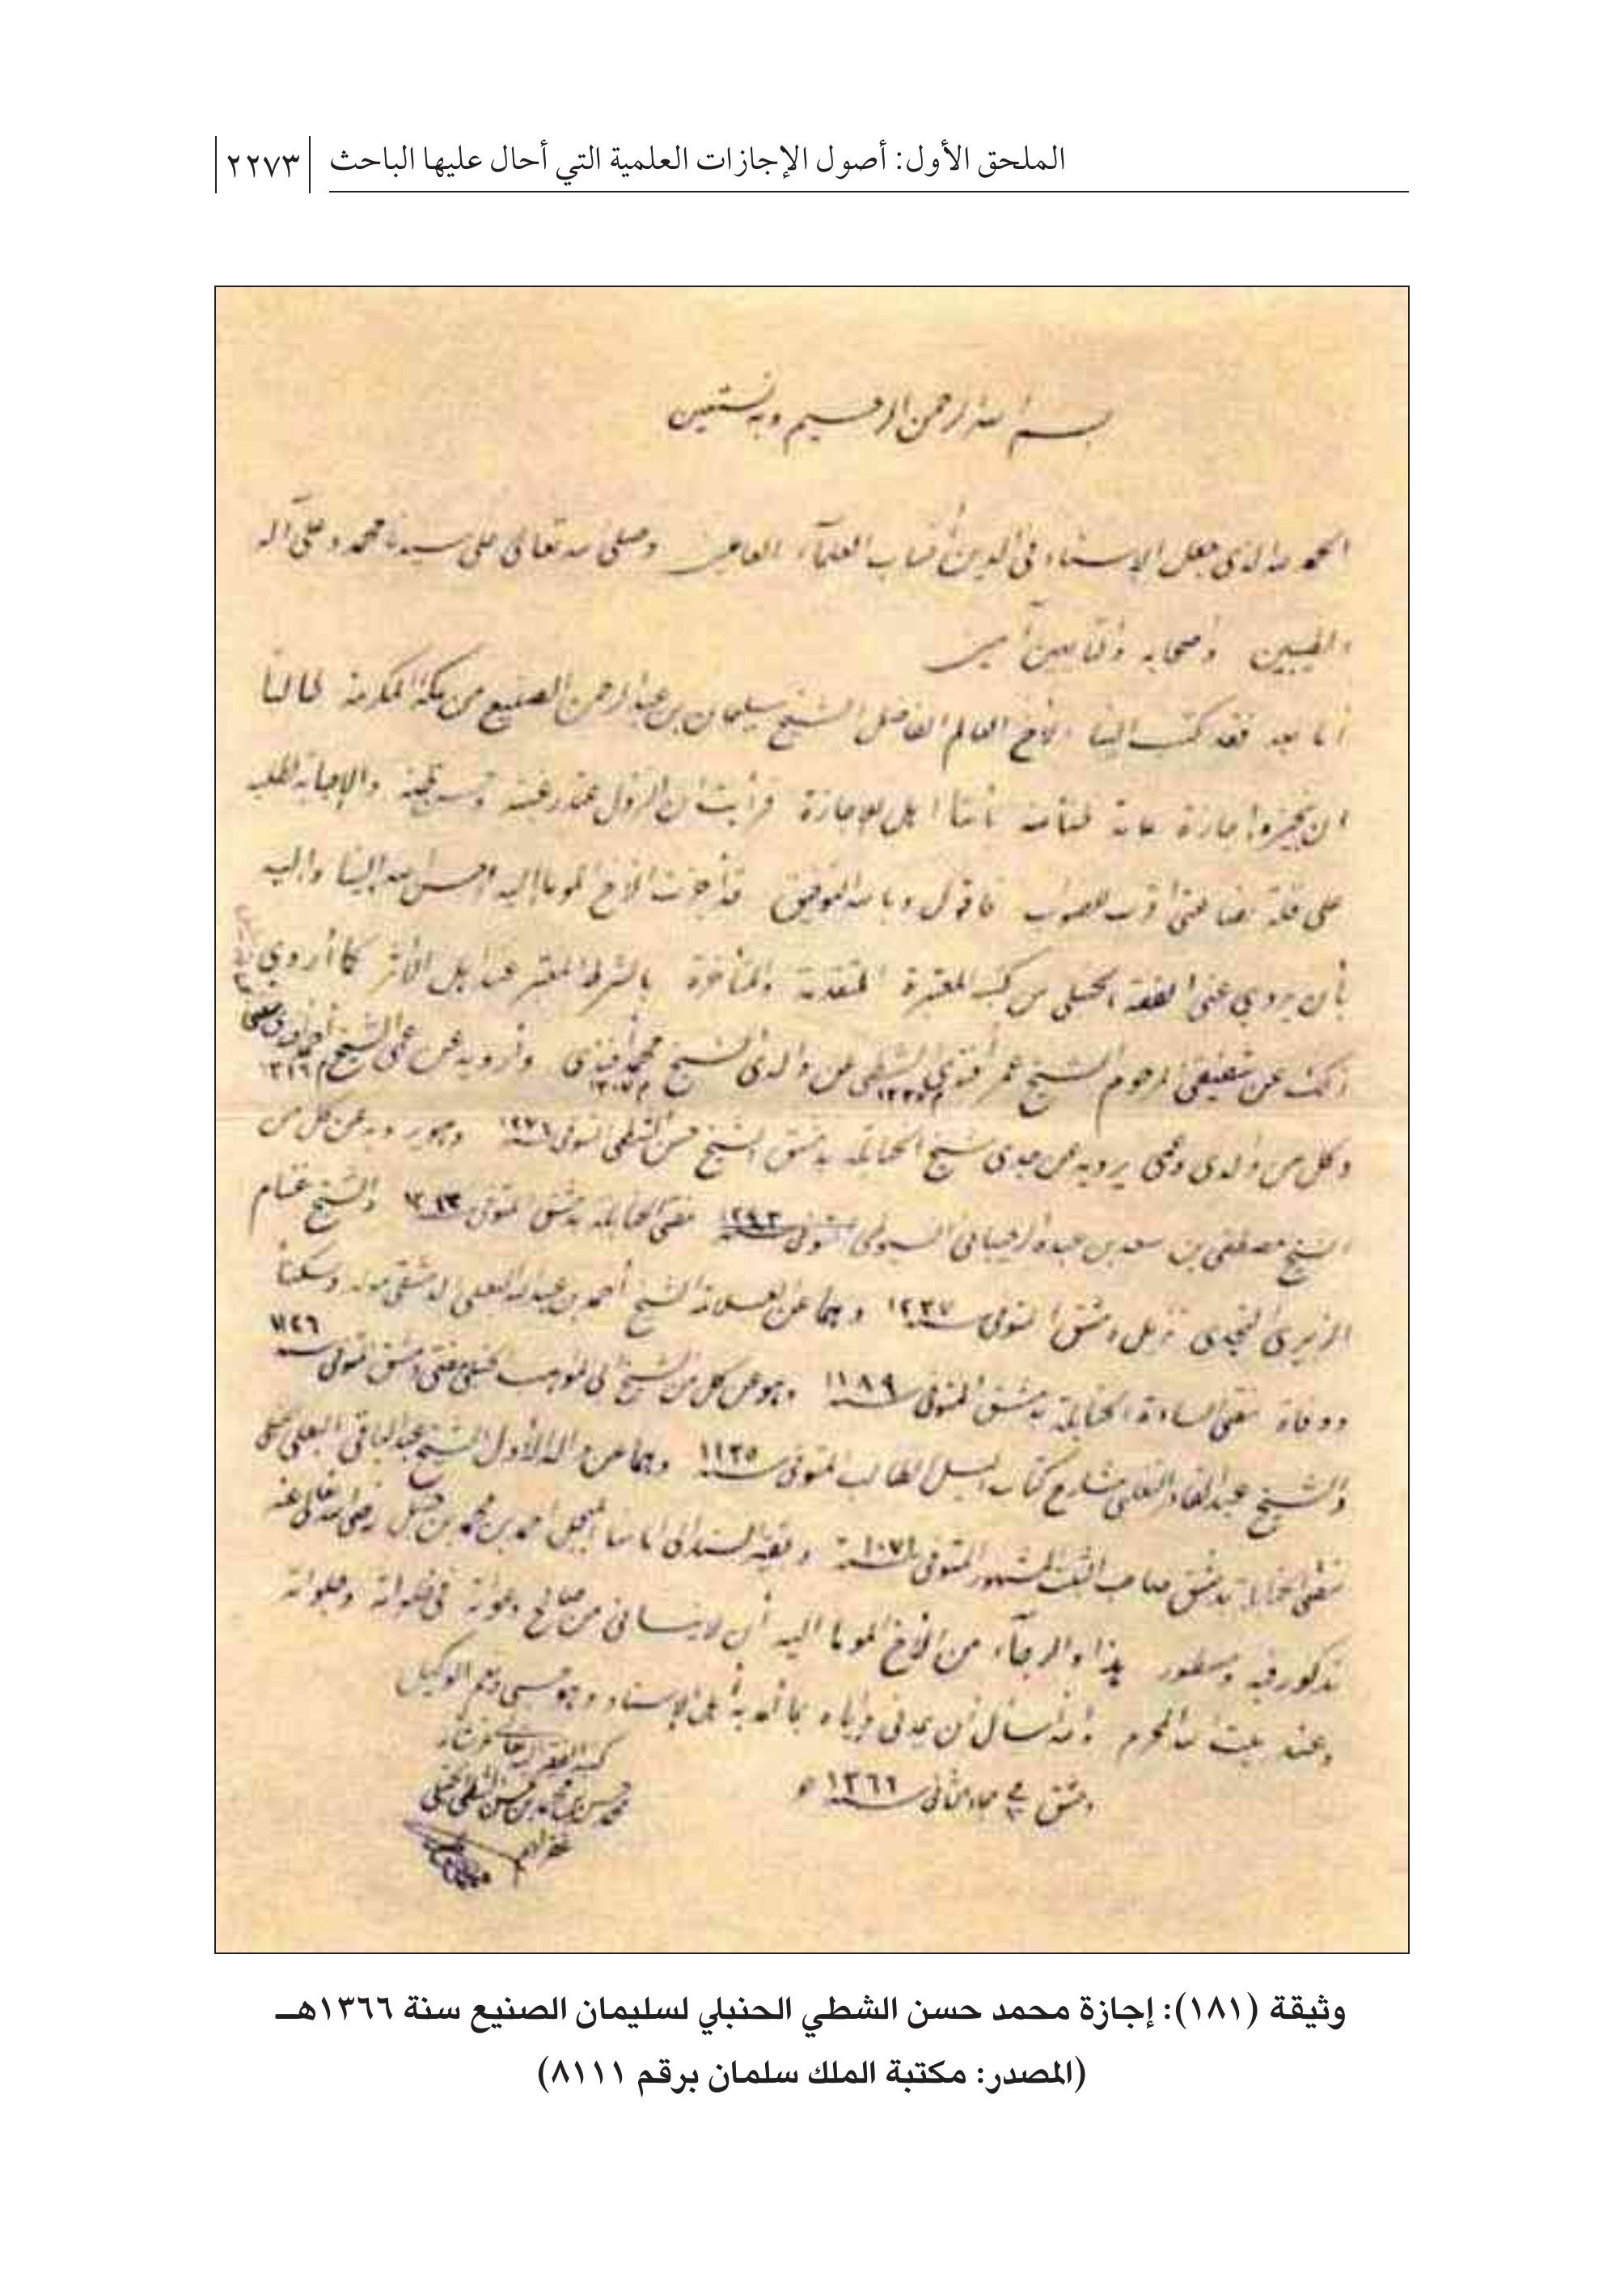 الملحق الأول: أصول الإجازات العلمية التي أحال عليها الباحث ٢٢٧٣
بسم الله الرحمن الرحيم وبه نستعين
الحمد لله الذي جعل الإسناد في الدين أنساب العلماء العاملين وصلى الله تعالى على سيدنا محمد وعلى آله
الطيبين وأصحابه والتابعين آمين
أما بعد فقد كتب إلينا الأخ العالم الفاضل الشيخ سليمان بن عبد الرحمن الصنيع من مكة المكرمة طالباً
ان نجيزه اجازة عامة ظناً منه بأننا اهل للإجازة فرأيت ان النزول عند رغبته والإجابة لطلبه
على قلة بضاعتي أقرب للصواب فأقول وبالله التوفيق قد أجزت الأخ الموما إليه احسن الله إلينا وإليه
بأن يروي عني الفقه الحنبلي من كتبه المعتبرة المتقدمة والمتأخرة بالشرط المعتبر عند أهل الأثر كما أروي
ذلك عن شقيقي المرحوم الشيخ عمر أفندي الشطي عن والدي الشيخ محمد أفندي م ١٣٠٧ وأرويه عن عمي الشيخ أحمد م ١٣١٦
وكل من والدي وعمي يرويه عن جدي شيخ الحنابلة بدمشق الشيخ حسن الشطي المتوفى سنة ١٢٧٤ وهو يرويه عن كل من
الشيخ مصطفى بن سعد بن عبده الرحيباني السيوطي المتوفى سنة مفتي الحنابلة بدمشق المتوفى والشيخ غنام
الزبيري النجدي نزيل دمشق المتوفى سنة ١٢٣٧ وهما عن العلامة الشيخ أحمد بن عبد الله البعلي الدمشقي مولداً وسكناً
ووفاة مفتي السادة الحنابلة بدمشق المتوفى سنة ١١٨٩ وهو عن كل من الشيخ أبي المواهب الحنبلي مفتي دمشق المتوفى سنة ١١٢٦
والشيخ عبد القادر التغلبي شارح كتاب دليل الطالب المتوفى سنة ١١٣٥ وهما عن والد الأول الشيخ عبد الباقي البعلي
مفتي الحنابلة بدمشق صاحب الثبت المشهور المتوفى سنة ١٠٧١ وبقية السند الى امامنا المبجل احمد بن محمد بن حنبل رضي الله تعالى عنه
مذكور فيه ومسطور هذا والرجاء من الأخ الموما اليه أن لا ينساني من صالح دعواته في خلواته وجلواته
وعند بيت الله المحرم والله أسأل أن يمدني وإياه بما أمد به أهل الإسناد وهو حسبي ونعم الوكيل
دمشق في جمادى الثاني سنة ١٣٦٦ هـ
كتبه الفقير إليه
محمد حسن بن محمد بن حسن الشطي الحنبلي
غفر لهم
وثيقة (١٨١): إجازة محمد حسن الشطي الحنبلي لسليمان الصنيع سنة ١٣٦٦هـ
(المصدر: مكتبة الملك سلمان برقم ٨١١١)